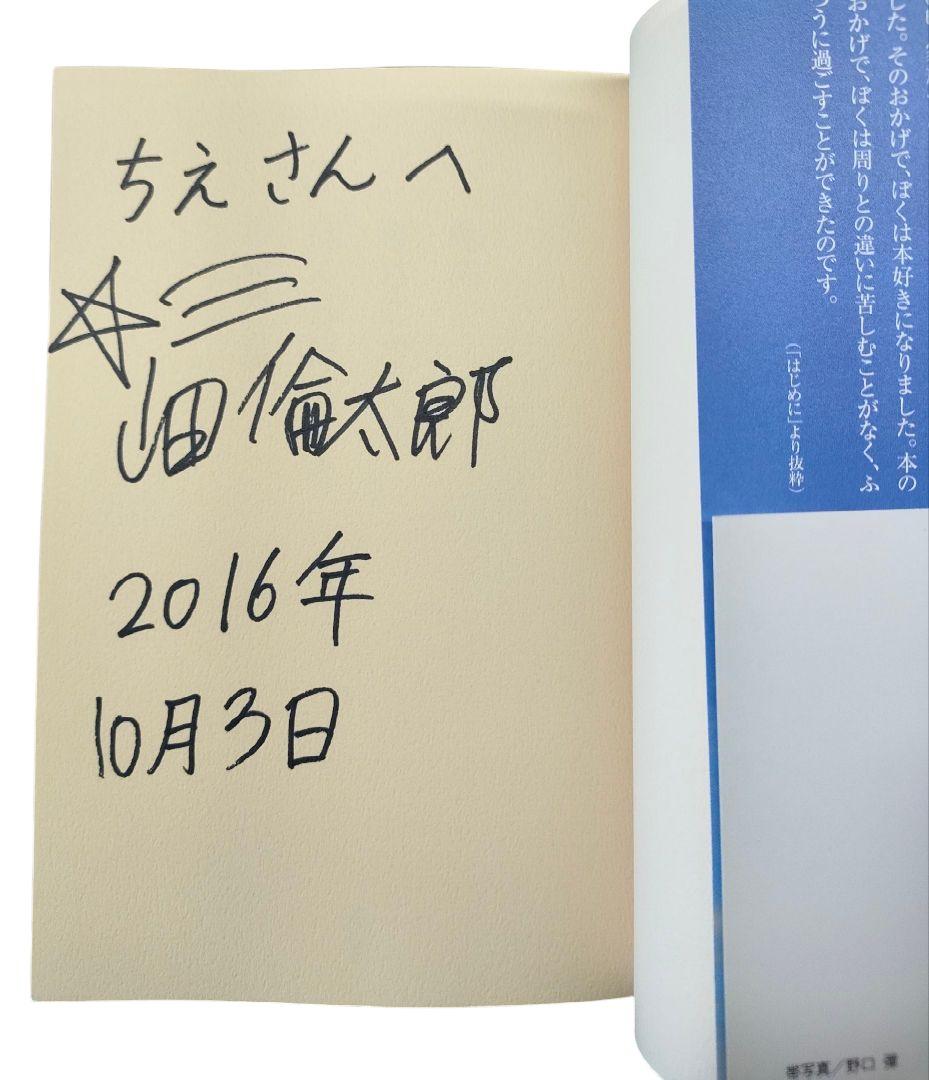 ちえさんへ
山田倫太郎
2016年
10月3日
した。そのおかげで、ぼくは本好きになりました。本の
おかげで、ぼくは周りとの違いに苦しむことがなく、ふ
つうに過ごすことができたのです。
(「はじめに」より抜粋)
帯写真/野口 彈